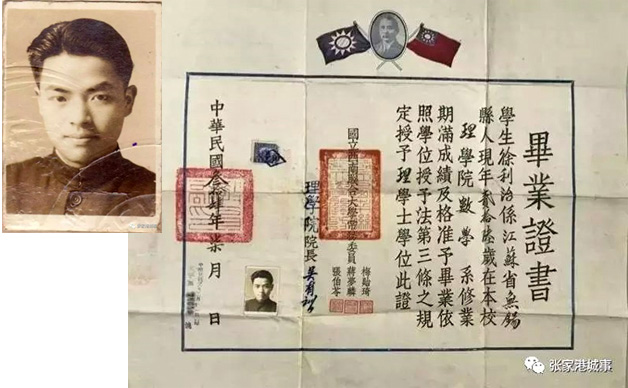 畢業證書
學生徐利治係江蘇省無錫
縣人現年貳拾陸歲在本校
理學院數學系修業
期滿成績及格准予畢業依
照學位授予法第三條之規
定授予理學士學位此證
國立西南聯合大學常務委員
梅貽琦
蔣夢麟
張伯苓
理學院院長 吳有訓
中華民國叁拾肆年柒月 日
张家港城事